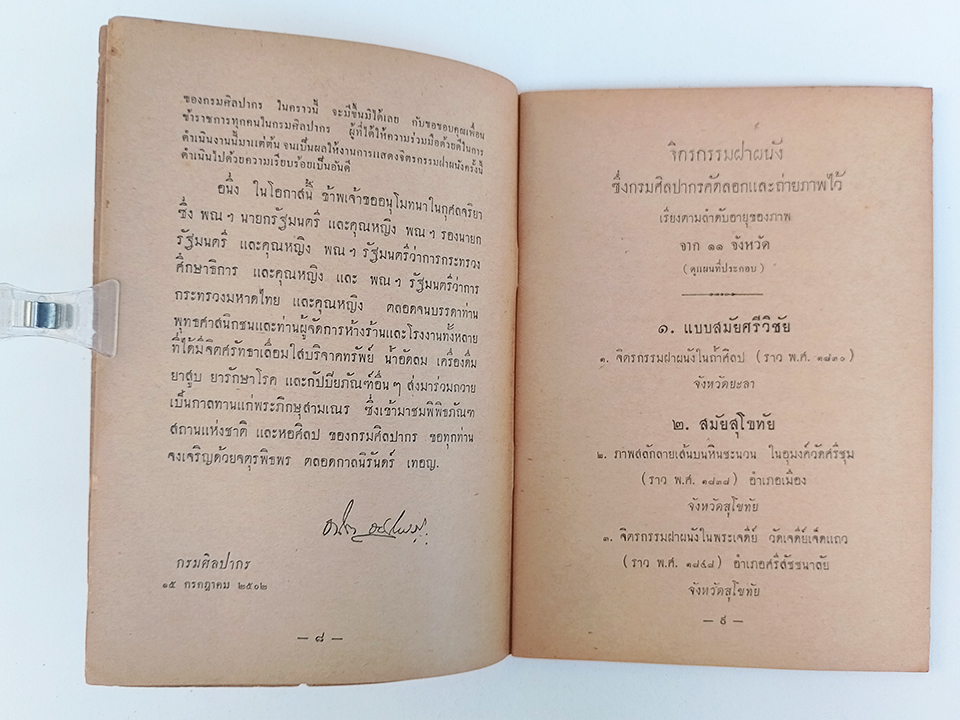 ของกรมศิลปากร ในคราวนี้ จะมีขึ้นมิได้เลย กับขอขอบคุณเพื่อน
ข้าราชการทุกคนในกรมศิลปากร ผู้ที่ได้ให้ความร่วมมือด้วยดีในการ
ดำเนินงานนี้มาแต่ต้น จนเป็นผลให้งานการแสดงจิตรกรรมฝาผนังครั้งนี้
ดำเนินไปด้วยความเรียบร้อยเป็นอันดี
อนึ่ง ในโอกาสนี้ ข้าพเจ้าขออนุโมทนาในกุศลจริยา
ซึ่ง พณฯ นายกรัฐมนตรี และคุณหญิง พณฯ รองนายก
รัฐมนตรี และคุณหญิง พณฯ รัฐมนตรีว่าการกระทรวง
ศึกษาธิการ และคุณหญิง และ พณฯ รัฐมนตรีว่าการ
กระทรวงมหาดไทย และคุณหญิง ตลอดจนบรรดาท่าน
พุทธศาสนิกชนและท่านผู้จัดการห้างร้านและโรงงานทั้งหลาย
ที่ได้มีจิตศรัทธาเลื่อมใสบริจาคทรัพย์ น้ำอัดลม เครื่องดื่ม
ยาสูบ ยารักษาโรค และกัปปิยภัณฑ์อื่นๆ ส่งมาร่วมถวาย
เป็นกาลทานแก่พระภิกษุสามเณร ซึ่งเข้ามาชมพิพิธภัณฑ
สถานแห่งชาติ และหอศิลป ของกรมศิลปากร ขอทุกท่าน
จงเจริญด้วยจตุรพิธพร ตลอดกาลนิรันดร์ เทอญ.
กรมศิลปากร
๑๕ กรกฎาคม ๒๕๐๒
— ๘ —
จิตรกรรมฝาผนัง
ซึ่งกรมศิลปากรคัดลอกและถ่ายภาพไว้
เรียงตามลำดับอายุของภาพ
จาก ๑๑ จังหวัด
(ดูแผนที่ประกอบ)
๑. แบบสมัยศรีวิชัย
๑. จิตรกรรมฝาผนังในถ้ำศิลป (ราว พ.ศ. ๑๘๓๐)
จังหวัดยะลา
๒. สมัยสุโขทัย
๒. ภาพสลักลายเส้นบนหินชะนวน ในอุมงค์วัดศรีชุม
(ราว พ.ศ. ๑๘๓๘) อำเภอเมือง
จังหวัดสุโขทัย
๓. จิตรกรรมฝาผนังในพระเจดีย์ วัดเจดีย์เจ็ดแถว
(ราว พ.ศ. ๑๘๔๘) อำเภอศรีสัชชนาลัย
จังหวัดสุโขทัย
— ๙ —